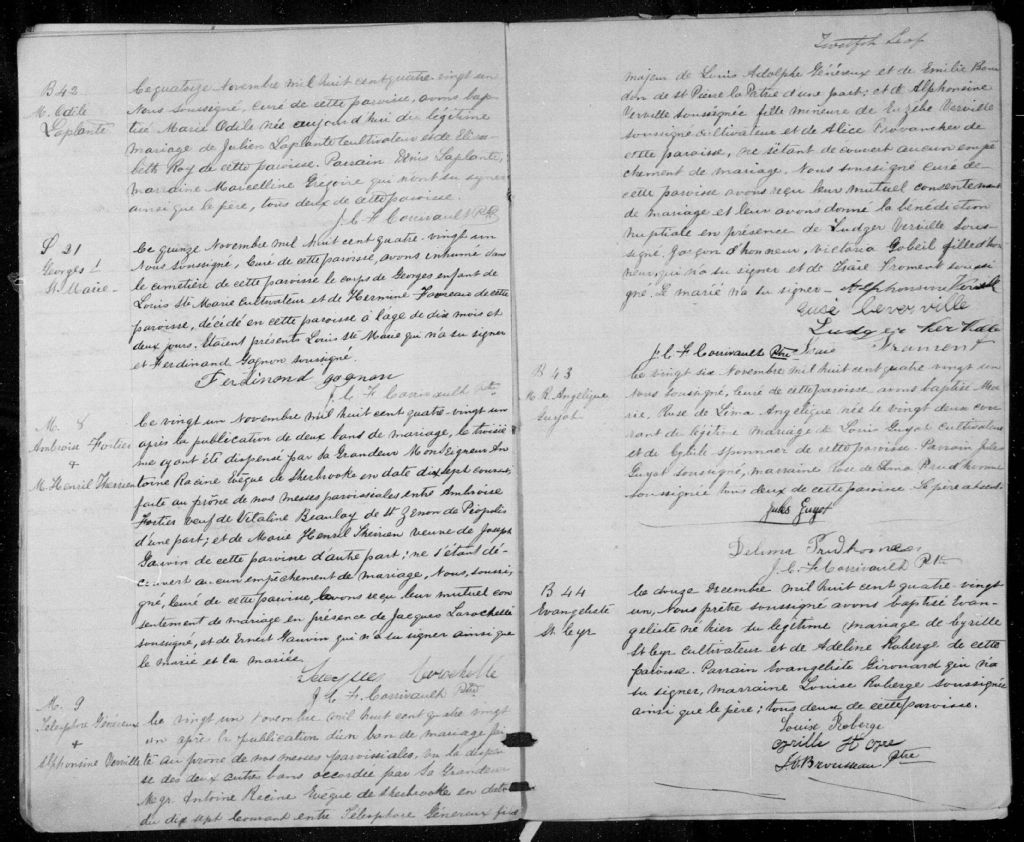 B 42
M. Odile
Laplante
Ce quatorze Novembre mil huit cent quatre vingt un
Nous soussigné, Curé de cette paroisse, avons bap
tisé Marie Odile née aujourd'hui du légitime
mariage de Julien Laplante Cultivateur et de Elisa
beth Roy de cette paroisse. Parrain Laplante,
marraine Marcelline Grégoire qui n'ont su signer
ainsi que le père, tous deux de cette paroisse.
J. C. F. Corrivault Ptre
S 21
Georges
St. Marie
Ce quinze Novembre mil huit cent quatre-vingt un
Nous soussigné, Curé de cette paroisse, avons inhumé dans
le cimetière de cette paroisse le corps de Georges enfant de
Louis Ste Marie Cultivateur et de Hermine de cette
paroisse, décédé en cette paroisse à l'âge de dix mois et
deux jours. Etaient présents Louis Ste Marie qui n'a su signer
et Ferdinand Gagnon soussigné.
Ferdinand gagnon
J. C. F. Corrivault Ptre
M. 8
Ambroise Fortier
+
M. Henril Therrien
Ce vingt un Novembre mil huit cent quatre-vingt un
après la publication de deux bans de mariage, le troisiè
me ayant été dispensé par Sa Grandeur Monseigneur An
toine Racine Evêque de Sherbrooke en date dix sept courant
faite au prône de nos messes paroissiales entre Ambroise
Fortier veuf de Vitaline Beaulay de St Zénon de Piopolis
d'une part; et de Marie Henril Therrien veuve de Joseph
Gauvin de cette paroisse d'autre part; ne s'étant dé-
couvert aucun empêchement de mariage, Nous, soussi
gné, Curé de cette paroisse, avons reçu leur mutuel con
sentement de mariage en présence de Jacques Larochelle
soussigné, et de Ernest Gauvin qui n'a su signer ainsi que
le marié et la mariée.
Jacques Larochelle
J. C. F. Corrivault Ptre
M. 9
Télesphore Généreux
+
Alphonsine Verville
Ce vingt un novembre mil huit cent quatre vingt
un après la publication d'un ban de mariage fai
te au prône de nos messes paroissiales, vu la dispen
se des deux autres bans accordée par Sa Grandeur
Mgr. Antoine Racine Evêque de Sherbrooke en date
du dix sept courant entre Télesphore Généreux fils
Twelfth Leaf
majeur de Louis Adolphe Généreux et de Emilie Beau
don de St Pierre d'une part; et d'Alphonsine
Verville soussignée fille mineure de Euzèbe Verville
soussigné cultivateur et de Alice Provancher de
cette paroisse, ne s'étant découvert aucun empê
chement de mariage, Nous soussigné curé de
cette paroisse avons reçu leur mutuel consentement
de mariage et leur avons donné la bénédiction
nuptiale en présence de Ludger Verville sous-
signé, garçon d'honneur, Victoria Gobeil fille d'hon
neur, qui n'a su signer et de Isaïe Froment soussi
gné. Le marié n'a su signer - Alphonsine Verville
Ludger Verville
J. C. F. Corrivault Ptre Isaie Froment
B 43
M. R. Angélique
Guyot
Ce vingt six Novembre mil huit cent quatre vingt un
Nous soussigné, Curé de cette paroisse avons baptisé Ma
rie, Rose de Lima Angélique née le vingt deux cou
rant de légitime mariage de Louis Guyot Cultivateur
et de de cette paroisse Parrain Jules
Guyot soussigné, marraine Rose de Lima Prudhomme
soussignée tous deux de cette paroisse. Le père absent.
Jules Guyot
Delima Prudhomme
J. C. F. Corrivault Ptre
B 44
Evangeliste
St Cyr
Ce douze Decembre mil huit cent quatre vingt
un, Nous prêtre soussigné avons baptisé Evan-
geliste né hier du légitime mariage de Cyrille
St Cyr cultivateur et de Adeline Roberge de cette
paroisse. Parrain Evangeliste Girouard qui n'a
su signer, marraine Louise Roberge soussignée
ainsi que le père; tous deux de cette paroisse.
Louise Roberge
Cyrille St Cyre
Brousseau Ptre